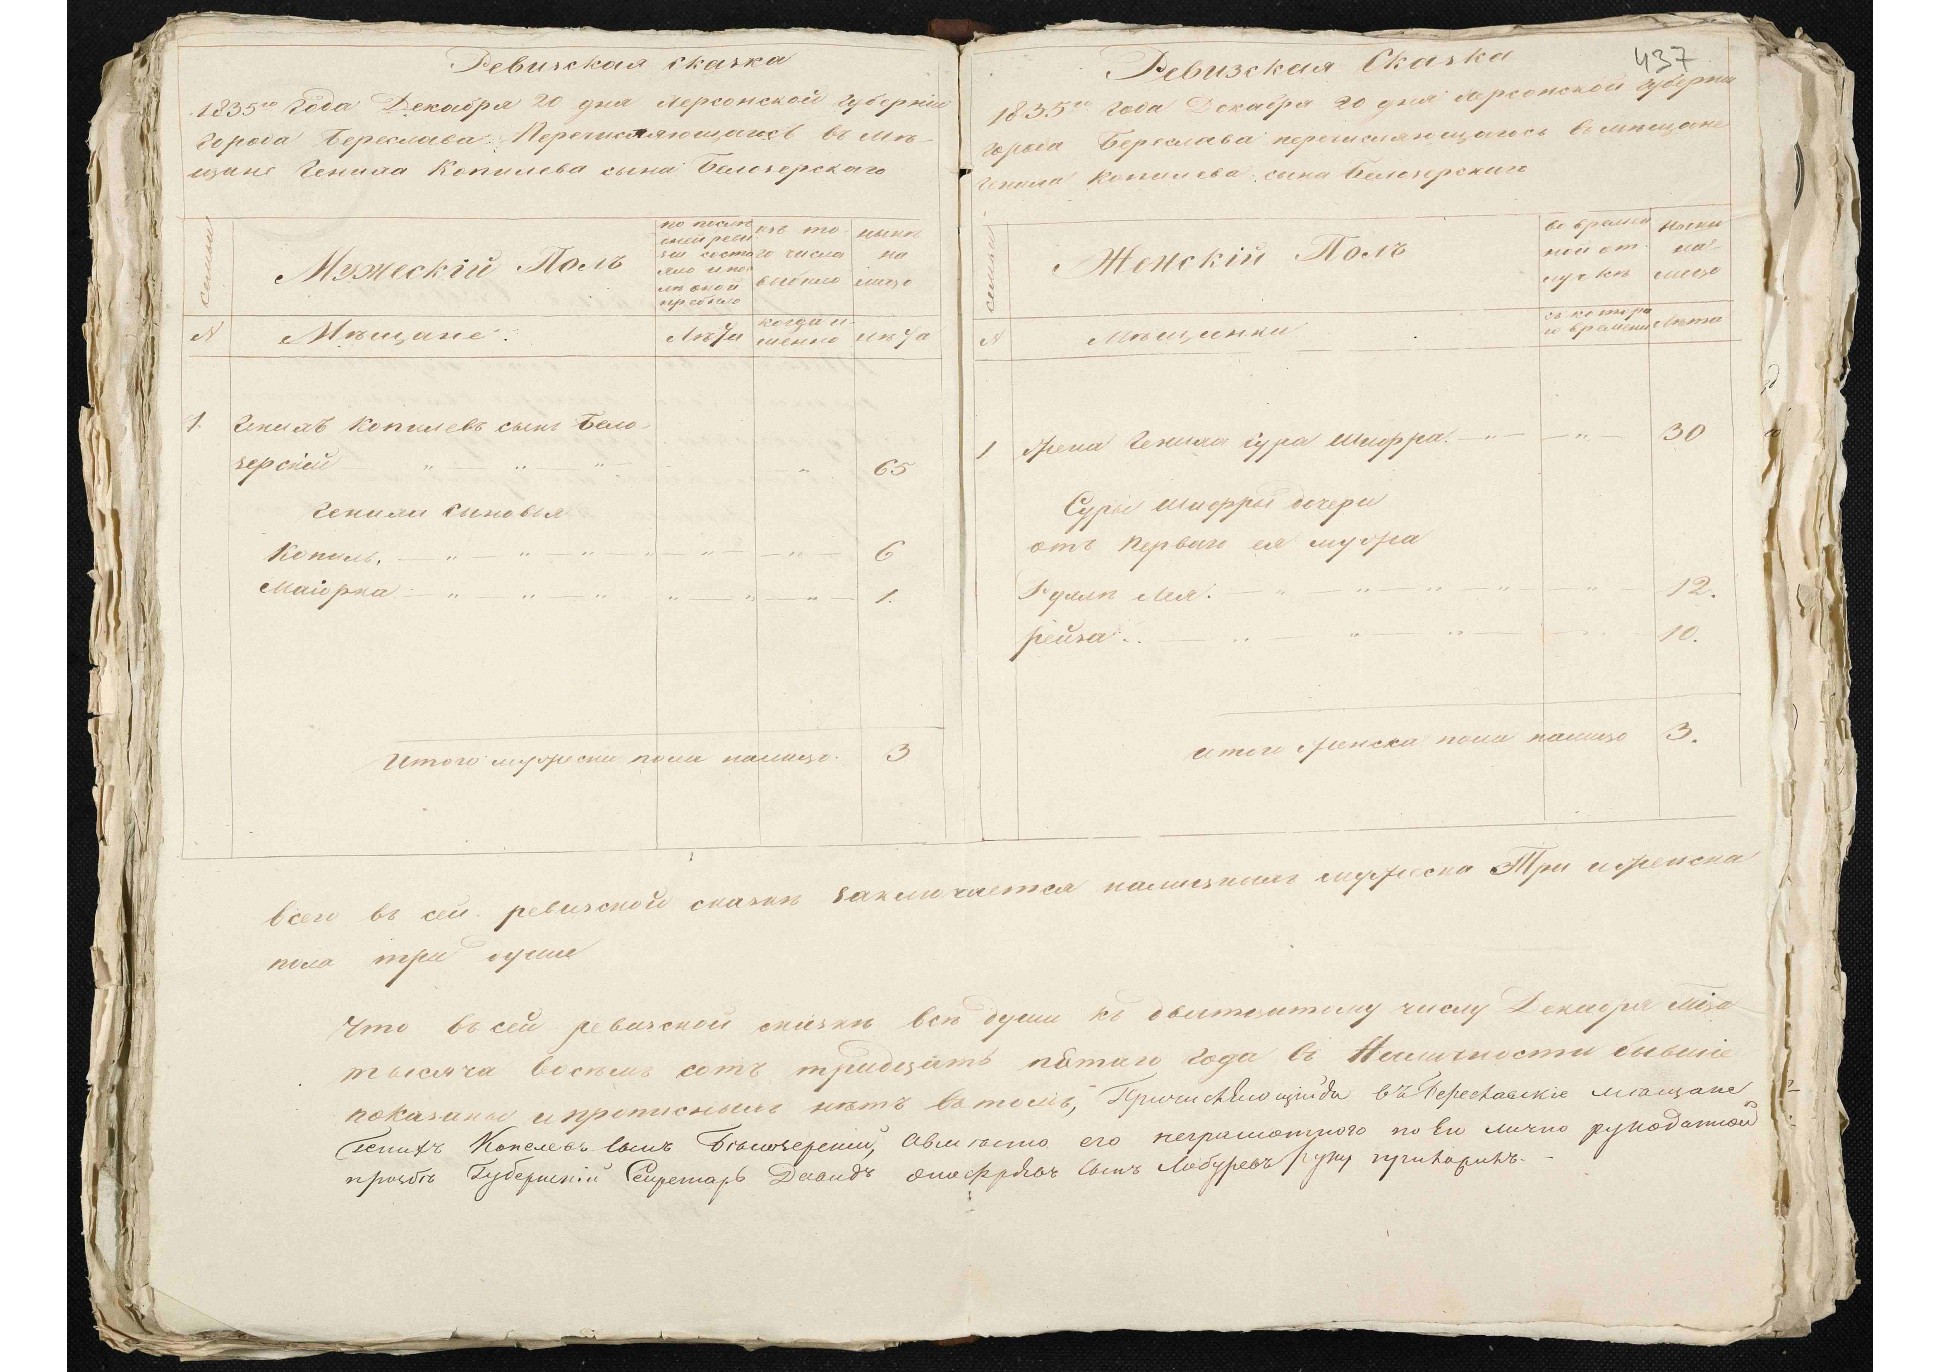 Ревизская сказка
1835го Года Декабря 20 дня Херсонской Губерніи
города Береслава Перечисляющагось въ мѣ-
щане Генила Копилева сына Белозерскаго
семьи
Мужескій Полъ
по послѣ
дней реви
зіи состо
яло и по
слѣ оной
прибыло
изъ то
го числа
выбыло
нынѣ
на
лицо
N
Мѣщане
Лѣта
когда и
менно
лѣта
1. Генилъ Копилевъ сынъ Бело-
зерскій 65
Генили сыновья
Копиль. 6
Маіорка 1.
Итого мужеска пола налицо. 3
437
Ревизская Сказка
1835го года Декабря 20 дня Херсонской Губерніи
города Береслава перечисляющагось въ мещане
Генила Копилева сына Белозерскаго
семьи
Женскій Полъ
во времен
ной от-
лучкѣ
ныне
на-
лицо
N
Мѣщанки
съ котора
го времени
Лѣта
1 Жена Генила Сура Шифра. 30
Суры Шифры дочери
отъ перваго ея мужа
Рухля Лея. 12.
Рейза 10.
итого женска пола налицо 3.
Всего въ сей ревизской сказкѣ заключается наличныхъ мужеска Три и женска
пола три души
Что въ сей ревизской сказкѣ всѣ души къ двытцатому числу Декабря мѣза
тысяча восемь сотъ тридцать пятаго года въ Наличности бывшіе
показаны и прописныхъ нѣтъ въ томъ, Причисляющійся въ Береславскіе мещане
Генихъ Копелевъ сынъ Бѣлозерскій, а вместо его неграмотного по Его лично рукоданной
прозбѣ Губернскій Секретарь Давидъ сынъ руку приложилъ.